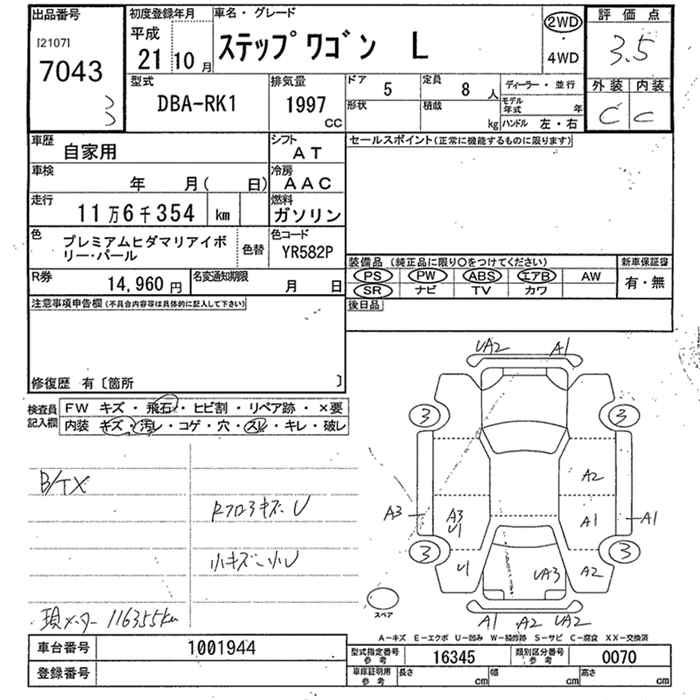 出品番号
[2107]
7043
3
初度登録年月
平成
21 10月
車名・グレード
ステップ ワゴン L
2WD
・
4WD
評価点
3.5
外装 内装
C C
型式
DBA-RK1
排気量
1997
CC
ドア 5
定員 8 人
形状
積載 kg
ディーラー・並行
モデル年式 年
ハンドル 左・右
車歴 自家用
シフト AT
車検 年 月( 日)
冷房 AAC
走行 11万6千354 km
燃料 ガソリン
色 プレミアムヒダマリアイボリー・パール
色替
色コード YR582P
R券 14,960 円
名変通知期限 月 日
セールスポイント(正常に機能するものに限ります)
装備品 (純正品に限り○をつけてください)
新車保証書
PS PW ABS エアB AW
SR ナビ TV カワ
有・無
後日品
注意事項申告欄(不具合内容等は具体的に記入して下さい)
修復歴 有〔箇所 〕
検査員記入欄
FW キズ・飛石・ヒビ割・リペア跡・×要
内装 キズ・汚レ・コゲ・穴・スレ・キレ・破レ
B/TX
RフロアキズU
小キズ・小U
現メーター 116355km
UA2 A1
3 3
A2
A3 A3 U1 A1 A1
3 3
U1 UA3 A2
A1 A2 UA2
スペア
A-キズ E-エクボ U-凹み W-補修跡 S-サビ C-腐食 XX-交換済
車台番号 1001944
登録番号
型式指定番号 参考 16345
類別区分番号 参考 0070
車庫証明用 参考
長さ cm
幅 cm
高さ cm